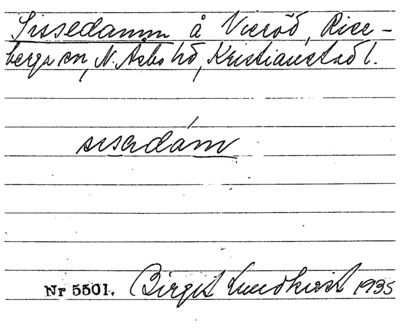 Sissedamm å Vieröd, Rise-
berga sn, N. Åsbo hd, Kristianstad l.
sisadám
Nr 5501. Birgit Lundkvist 1935